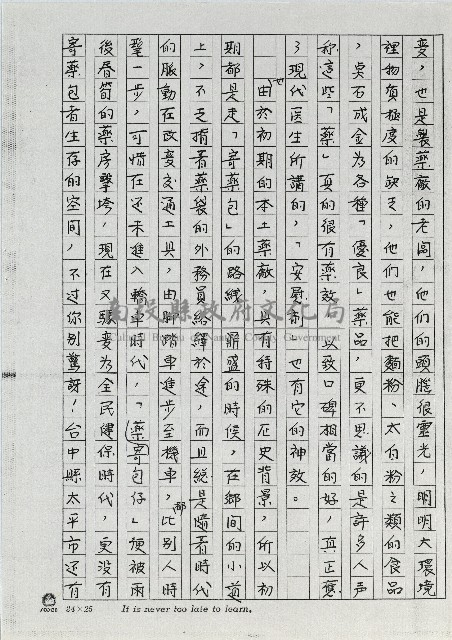 變，也是製藥廠的老闆，他們的頭腦很靈光，明明大環境
裡物質極度的缺乏，他們也能把麵粉、太白粉之類的食品
，点石成金為各種「優良」藥品，更不思議的是許多人声
称這些「藥」真的很有藥效，以致口碑相當的好，真正應
了現代医生所講的，「安慰劑」也有它的神效。
由於初期的本土藥廠，具有特殊的历史背景，所以初
期都是走「寄藥包」的路線，鼎盛的時候，在鄉間的小道
上，不乏揹着藥袋的外務員絡繹於途，而且總是隨着時代
的脈動在改變交通工具，由腳踏車進步至機車，都比別人時
髦一步，可惜在还未進入轎車時代，「藥寄包仔」便被雨
後春筍的藥房擊垮，現在又演变為全民健保時代，更没有
寄藥包者生存的空間，不过你別驚訝！台中縣太平市还有
南投縣政府文化局
Cultural Bureau of Nantou County Government
24×25
It is never too late to learn.